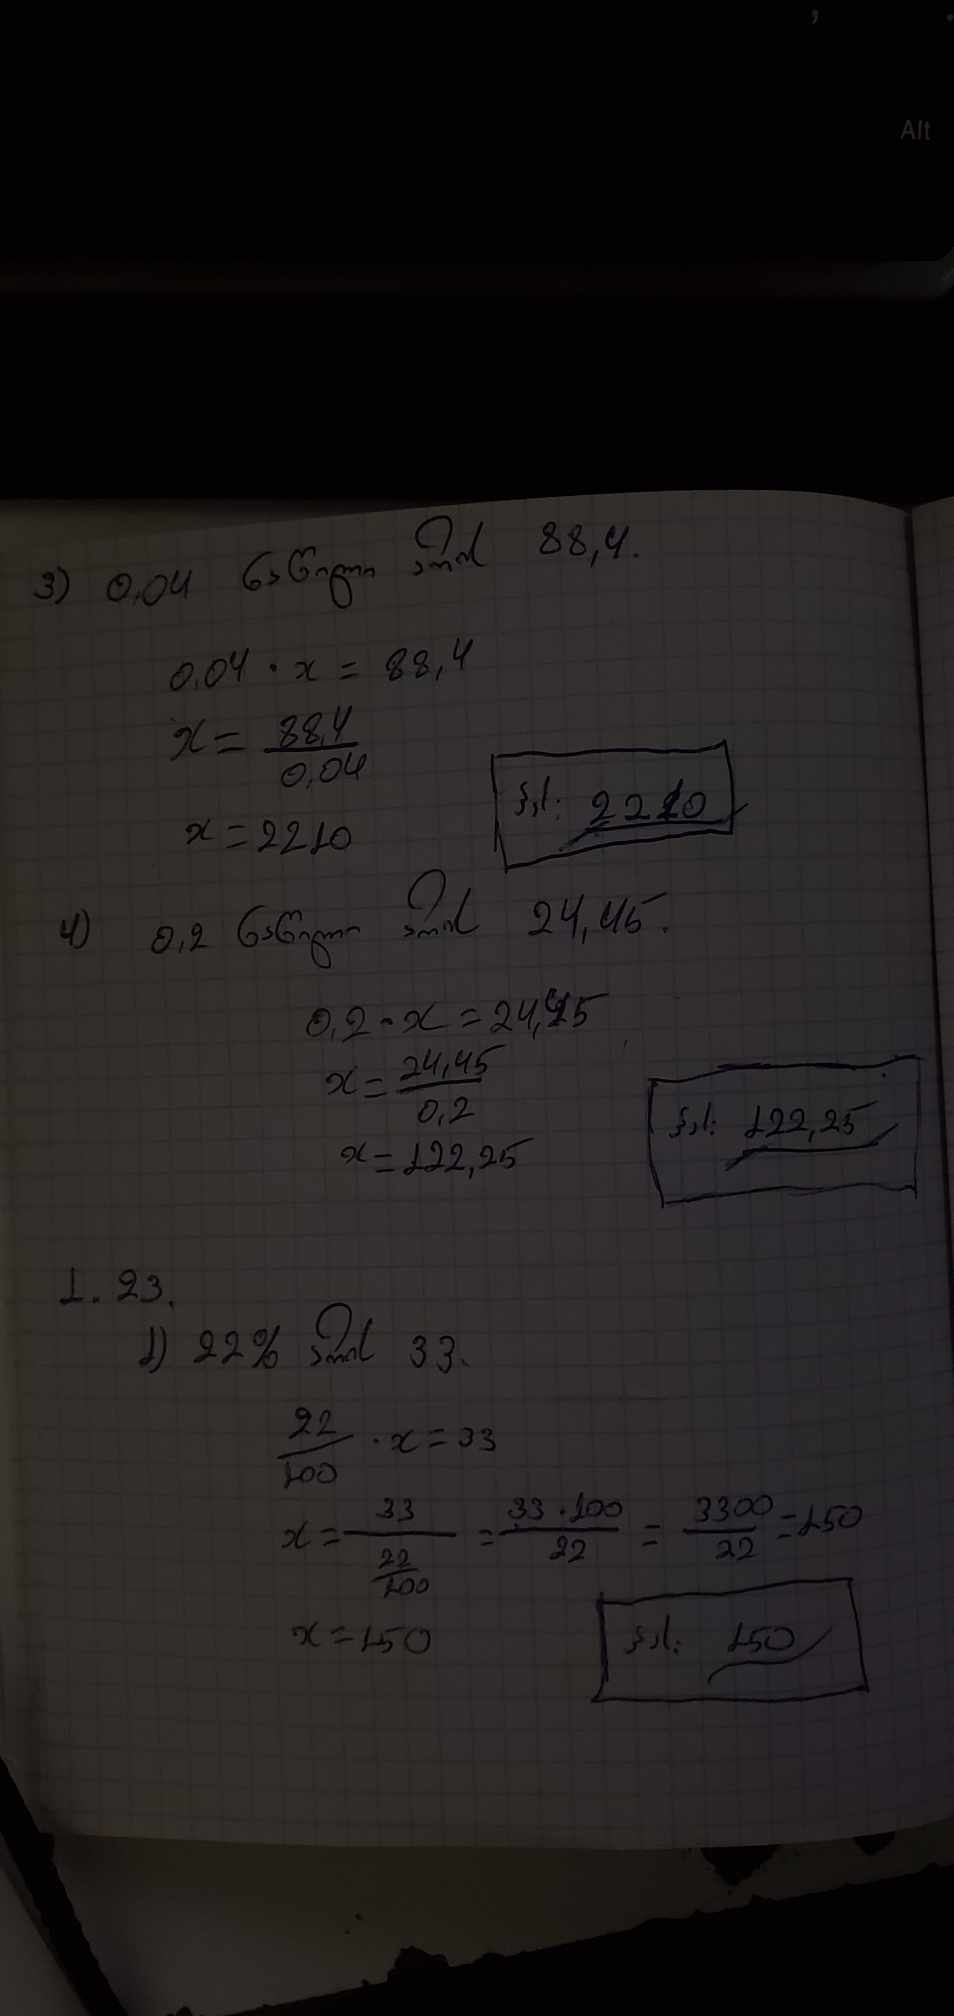 Alt
3) 0.04 ნაწილი არის 88,4.
0.04 · x = 88,4
x = 88,4 / 0,04
x = 2210
პას: 2210
4) 0,2 ნაწილი არის 24,45.
0,2 · x = 24,45
x = 24,45 / 0,2
x = 122,25
პას: 122,25
1. 23.
1) 22% არის 33.
22/100 · x = 33
x = 33 / (22/100) = 33 · 100 / 22 = 3300 / 22 = 150
x = 150
პას: 150